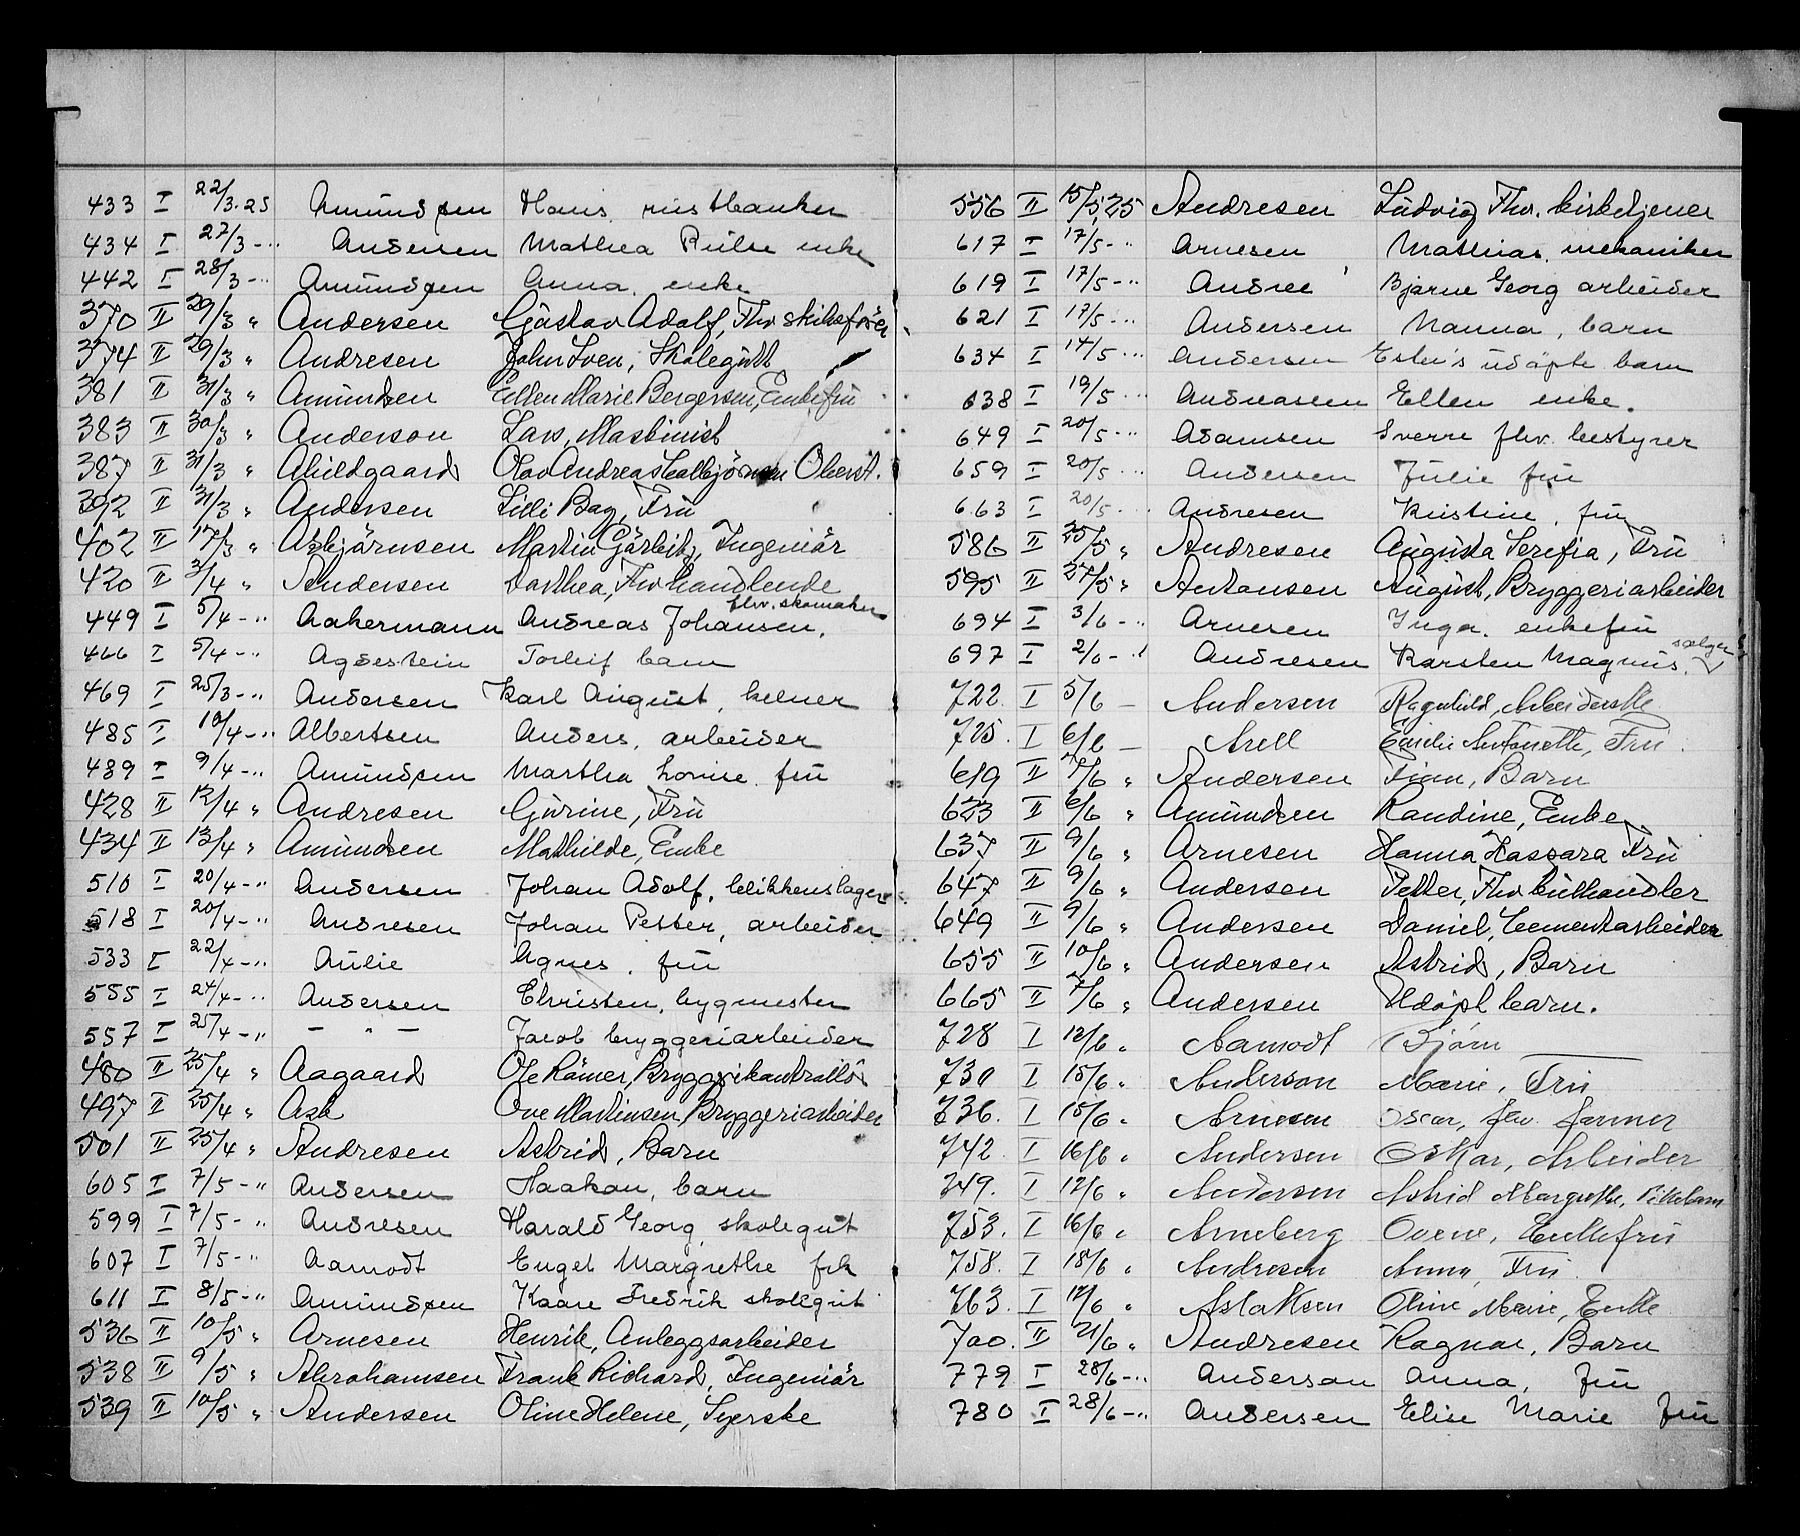 433 I 22/3.25 Amundsen Hans, rustbanker
434 I 27/3 -" Andersen Mathea enke
442 I 28/3 -" Amundsen Anna, enke
370 II 29/3 " Andersen Gustav Adolf, Fhv skibsfører
374 II 29/3 " Andresen John Sven, Skolegutt
381 II 31/3 " Amundsen Ellen Marie Bergersen, Enkefru
383 II 30/3 " Anderson Lars, Maskinist
387 II 31/3 " Abildgaard Olav Andreas Oberst.
392 II 31/3 " Andersen Lilli Bay, Fru
402 II 17/3 " Asbjørnsen Martin Ingeniør
420 II 3/4 " Andersen Dorthea, Fhv handlende
449 I 5/4 -" Aakermann Andreas Johansen, fhv. skomaker
466 I 5/4 -" Agdestein Torleif barn
469 I 25/3 -" Andersen Karl August, kelner
485 I 10/4 -" Albertsen Anders, arbeider
489 I 9/4 -" Amundsen Martha Lovise fru
428 II 12/4 " Andresen Gurine, Fru
434 II 13/4 " Amundsen Mathilde, Enke
510 I 20/4 -" Andersen Johan Adolf, blikkenslager
518 I 20/4 -" Andresen Johan Petter, arbeider
533 I 22/4 -" Aulie Agnes, fru
555 I 24/4 -" Andersen Christen, bygmester
557 I 25/4 -" - " - Jacob bryggeriarbeider
480 II 25/4 " Aagaard Ole Rømer, Bryggerikontrollør
497 II 25/4 " Ask Ove Martinsen, Bryggeriarbeider
501 II 25/4 " Andresen Astrid, Barn
605 I 7/5 -" Andersen Haakon, barn
599 I 7/5 -" Andresen Harald Georg, skolegut
607 I 7/5 -" Aamodt Engel Margrethe frk
611 I 8/5 -" Amundsen Kaare Fredrik skolegut
536 II 10/5 " Arnesen Henrik, Anleggsarbeider
538 II 9/5 " Abrahamsen Frank Richard, Ingeniør
539 II 10/5 " Andersen Oline Helene, Syerske
556 II 15/5,25 Andresen Ludvig Fhv. kirketjener
617 I 17/5 -" Arnesen Mathias, mekaniker
619 I 17/5 -" Andree Bjarne Georg arbeider
621 I 17/5 -" Andersen Nanna, barn
634 I 14/5 -" Andersen udøpte barn
638 I 19/5 -" Andreasen Ellen enke.
649 I 20/5 -" Adamsen Sverre fhv. bestyrer
659 I 20/5 -" Andersen Julie fru
663 I 20/5 -" Andresen Kristine, fru
586 II 25/5 " Andresen Augusta Serefia, Fru
595 II 27/5 " Antonsen August, Bryggeriarbeider
694 I 3/6 -" Arnesen Inga, enkefru
697 I 2/6 -" Andresen Karsten Magnus, sælger
722 I 5/6 - Andersen Ragnhild, Arbeiderske
725. I 6/6 - Arell Emilie Antonette, Fru.
619 II 7/6 " Andersen Finn, Barn
623 II 6/6 " Amundsen Randine, Enke
637 II 9/6 " Arnesen Hanna Hassara Fru
647 II 9/6 " Andersen Petter, Fhv
649 II 9/6 " Andersen Daniel, Cementarbeider
655 II 10/6 " Andersen Astrid, Barn
665 II 7/6 " Andersen Udøpt barn.
728 I 12/6 " Aamodt Bjørn
730 I 15/6 " Anderson Marie, Fru
736. I 15/6 " Arnesen Oscar, fhv. farmer
742 I 16/6 " Andersen Oskar, Arbeider
749. I 12/6 " Andersen Astrid Margrethe, Pikebarn
753. I 16/6 " Arneberg Ovene, Enkefru
758. I 18/6 " Andresen Anna, Fru.
763. I 12/6 " Aslaksen Oline Marie, Enke
700. II 21/6 " Andresen Ragnar, Barn
779 I 28/6 -" Anderson Anna, fru
780 I 28/6 -" Andersen Elise Marie fru